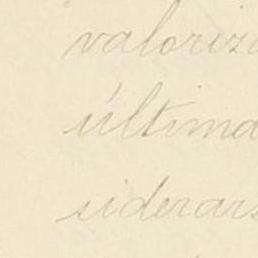 valoriza
última
siderars